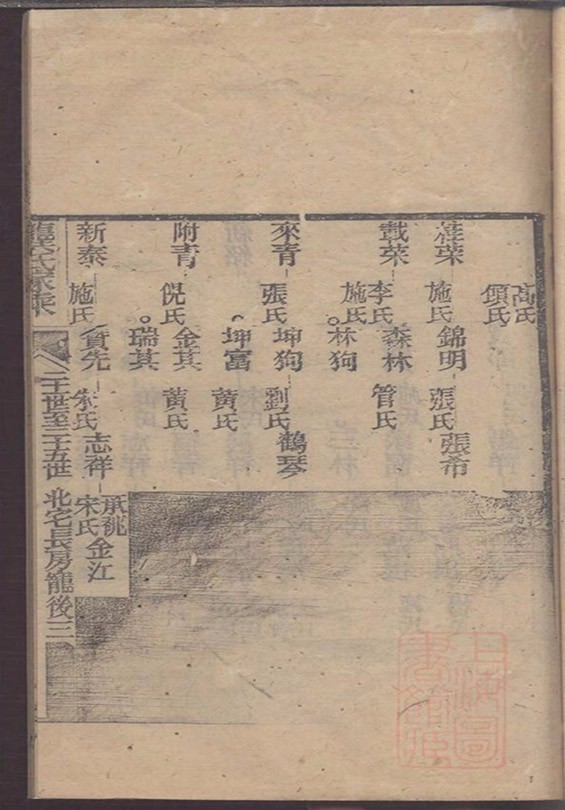 高氏
傎氏
萑荣 施氏 錦明 張氏 張希
載荣 李氏 森林 管氏
施氏 林狗
來青 張氏 坤狗 劉氏 鶴琴
坤富 黄氏
附青 倪氏 金其 黄氏
瑞其
新泰 施氏 貢先 朱氏 志祥 承祧 金江
宋氏
龔氏家乘 二十世至二十五世 北宅長房龍後三
上海圖書館藏